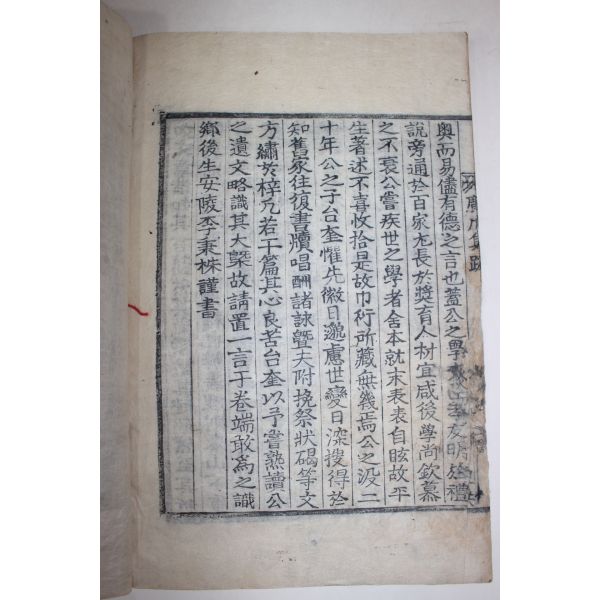 奧而易儘有德之言也蓋公之學友明於禮
說旁通於百家尤長於奬育人材宜咸後學尚欽慕
之不衰公嘗疾世之學者舍本就末表表自眩故平
生著述不喜收拾是故巾衍所藏無幾焉公之沒二
十年公之子台奎懼先徽日邈慮世變日深搜得於
知舊家往復書牘唱酬諸詠曁夫附挽祭狀碣等文
方繡於梓凡若干篇其心良苦台奎以予嘗熟讀公
之遺文略識其大槩故請置一言于卷端敢爲之識
鄕後生安陵李秉株謹書